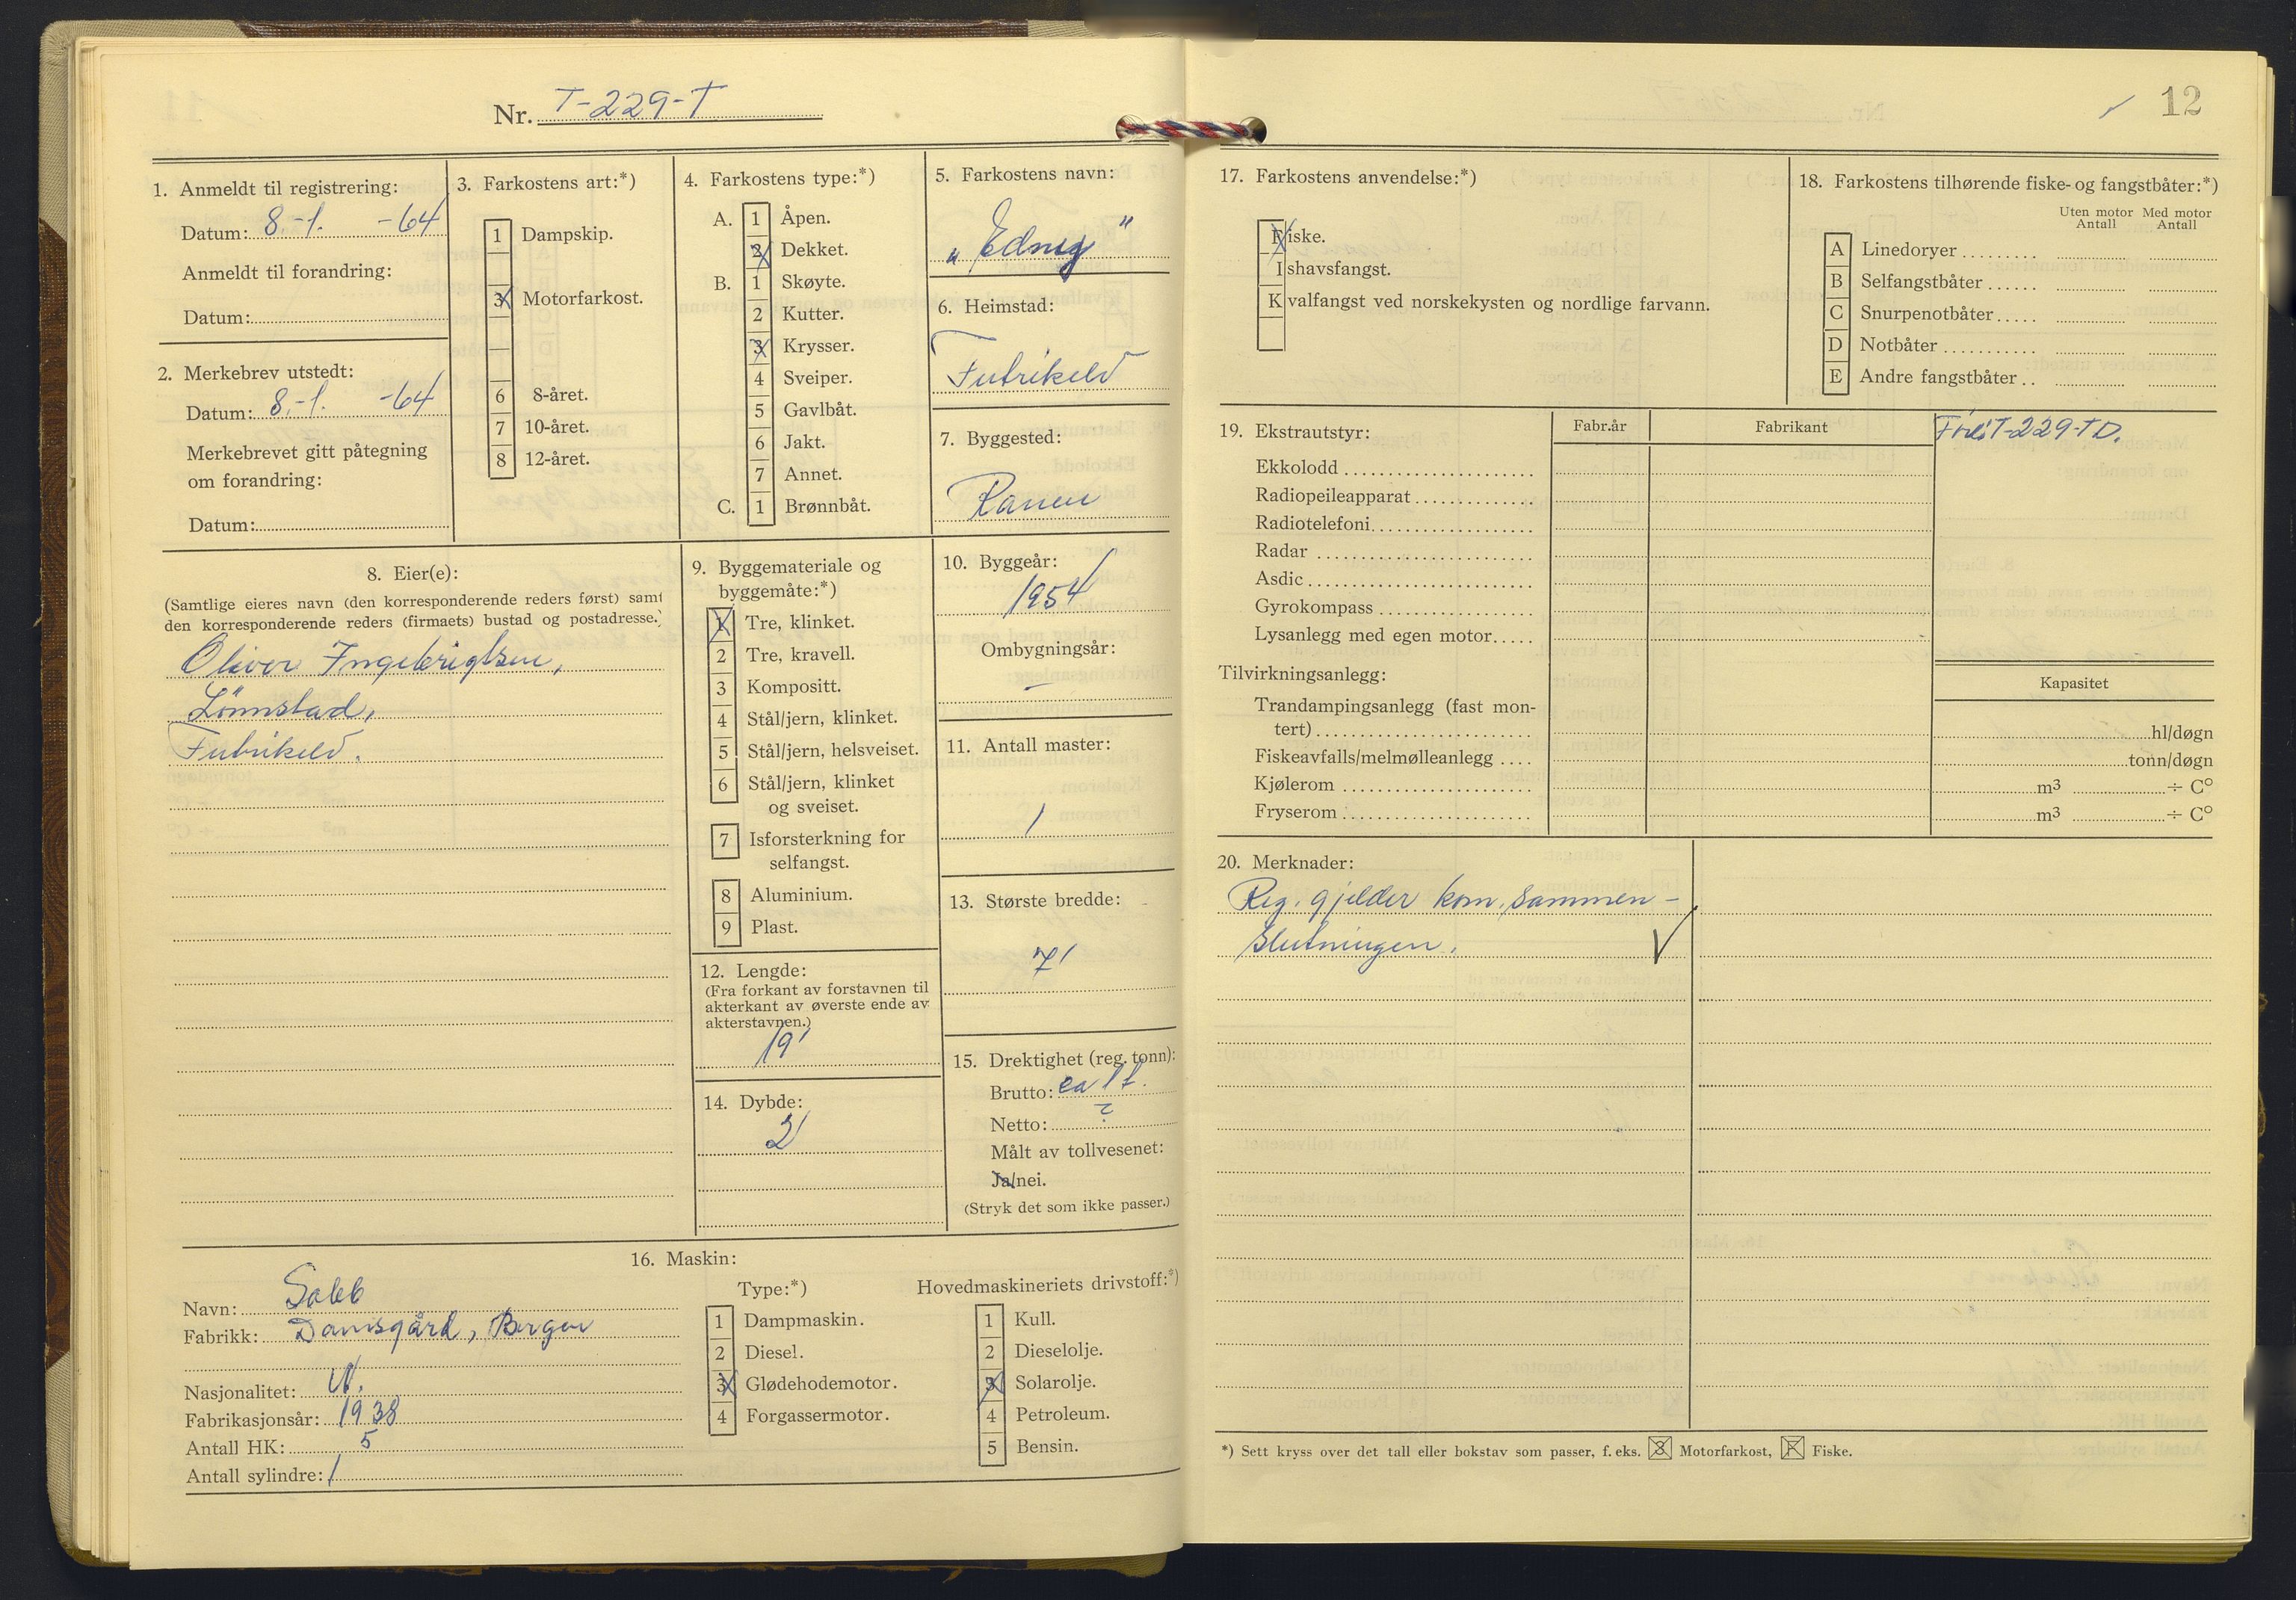 Nr. T-229-T
1. Anmeldt til registrering:
Datum: 8.-1. -64
Anmeldt til forandring:
Datum:
2. Merkebrev utstedt:
Datum: 8.-1. -64
Merkebrevet gitt påtegning
om forandring:
Datum:
3. Farkostens art:*)
1 Dampskip.
3 Motorfarkost.
6 8-året.
7 10-året.
8 12-året.
4. Farkostens type:*)
A. 1 Åpen.
2 Dekket.
B. 1 Skøyte.
2 Kutter.
3 Krysser.
4 Sveiper.
5 Gavlbåt.
6 Jakt.
7 Annet.
C. 1 Brønnbåt.
5. Farkostens navn:
„Edny"
6. Heimstad:
Finnikeld
7. Byggested:
Ranen
8. Eier(e):
(Samtlige eieres navn (den korresponderende reders først) samt
den korresponderende reders (firmaets) bustad og postadresse.)
Oliver Ingebrigtsen,
Lønnstad,
9. Byggemateriale og
byggemåte:*)
1 Tre, klinket.
2 Tre, kravell.
3 Kompositt.
4 Stål/jern, klinket.
5 Stål/jern, helsveiset.
6 Stål/jern, klinket
og sveiset.
7 Isforsterkning for
selfangst.
8 Aluminium.
9 Plast.
10. Byggeår:
1954
Ombygningsår:
—
11. Antall master:
1
12. Lengde:
(Fra forkant av forstavnen til
akterkant av øverste ende av
akterstavnen.)
19'
13. Største bredde:
7'
14. Dybde:
2'
15. Drektighet (reg. tonn):
Brutto: ca 1 t.
Netto: ?
Målt av tollvesenet:
Ja/nei.
(Stryk det som ikke passer.)
16. Maskin:
Navn: Sabb
Fabrikk: Damsgård, Bergen
Nasjonalitet: N.
Fabrikasjonsår: 1938
Antall HK: 5
Antall sylindre: 1
Type:*)
1 Dampmaskin.
2 Diesel.
3 Glødehodemotor.
4 Forgassermotor.
Hovedmaskineriets drivstoff:*)
1 Kull.
2 Dieselolje.
3 Solarolje.
4 Petroleum.
5 Bensin.
12
17. Farkostens anvendelse:*)
Fiske.
Ishavsfangst.
Kvalfangst ved norskekysten og nordlige farvann.
18. Farkostens tilhørende fiske- og fangstbåter:*)
Uten motor Med motor
Antall Antall
A Linedoryer
B Selfangstbåter
C Snurpenotbåter
D Notbåter
E Andre fangstbåter
19. Ekstrautstyr: Fabr.år Fabrikant
T-229-TD.
Ekkolodd
Radiopeileapparat
Radiotelefoni
Radar
Asdic
Gyrokompass
Lysanlegg med egen motor
Tilvirkningsanlegg: Kapasitet
Trandampingsanlegg (fast mon-
tert) hl/døgn
Fiskeavfalls/melmølleanlegg tonn/døgn
Kjølerom m³ ÷ C°
Fryserom m³ ÷ C°
20. Merknader:
Reg. gjelder kom. sammen-
slutningen.
*) Sett kryss over det tall eller bokstav som passer, f. eks. 3 Motorfarkost, F Fiske.